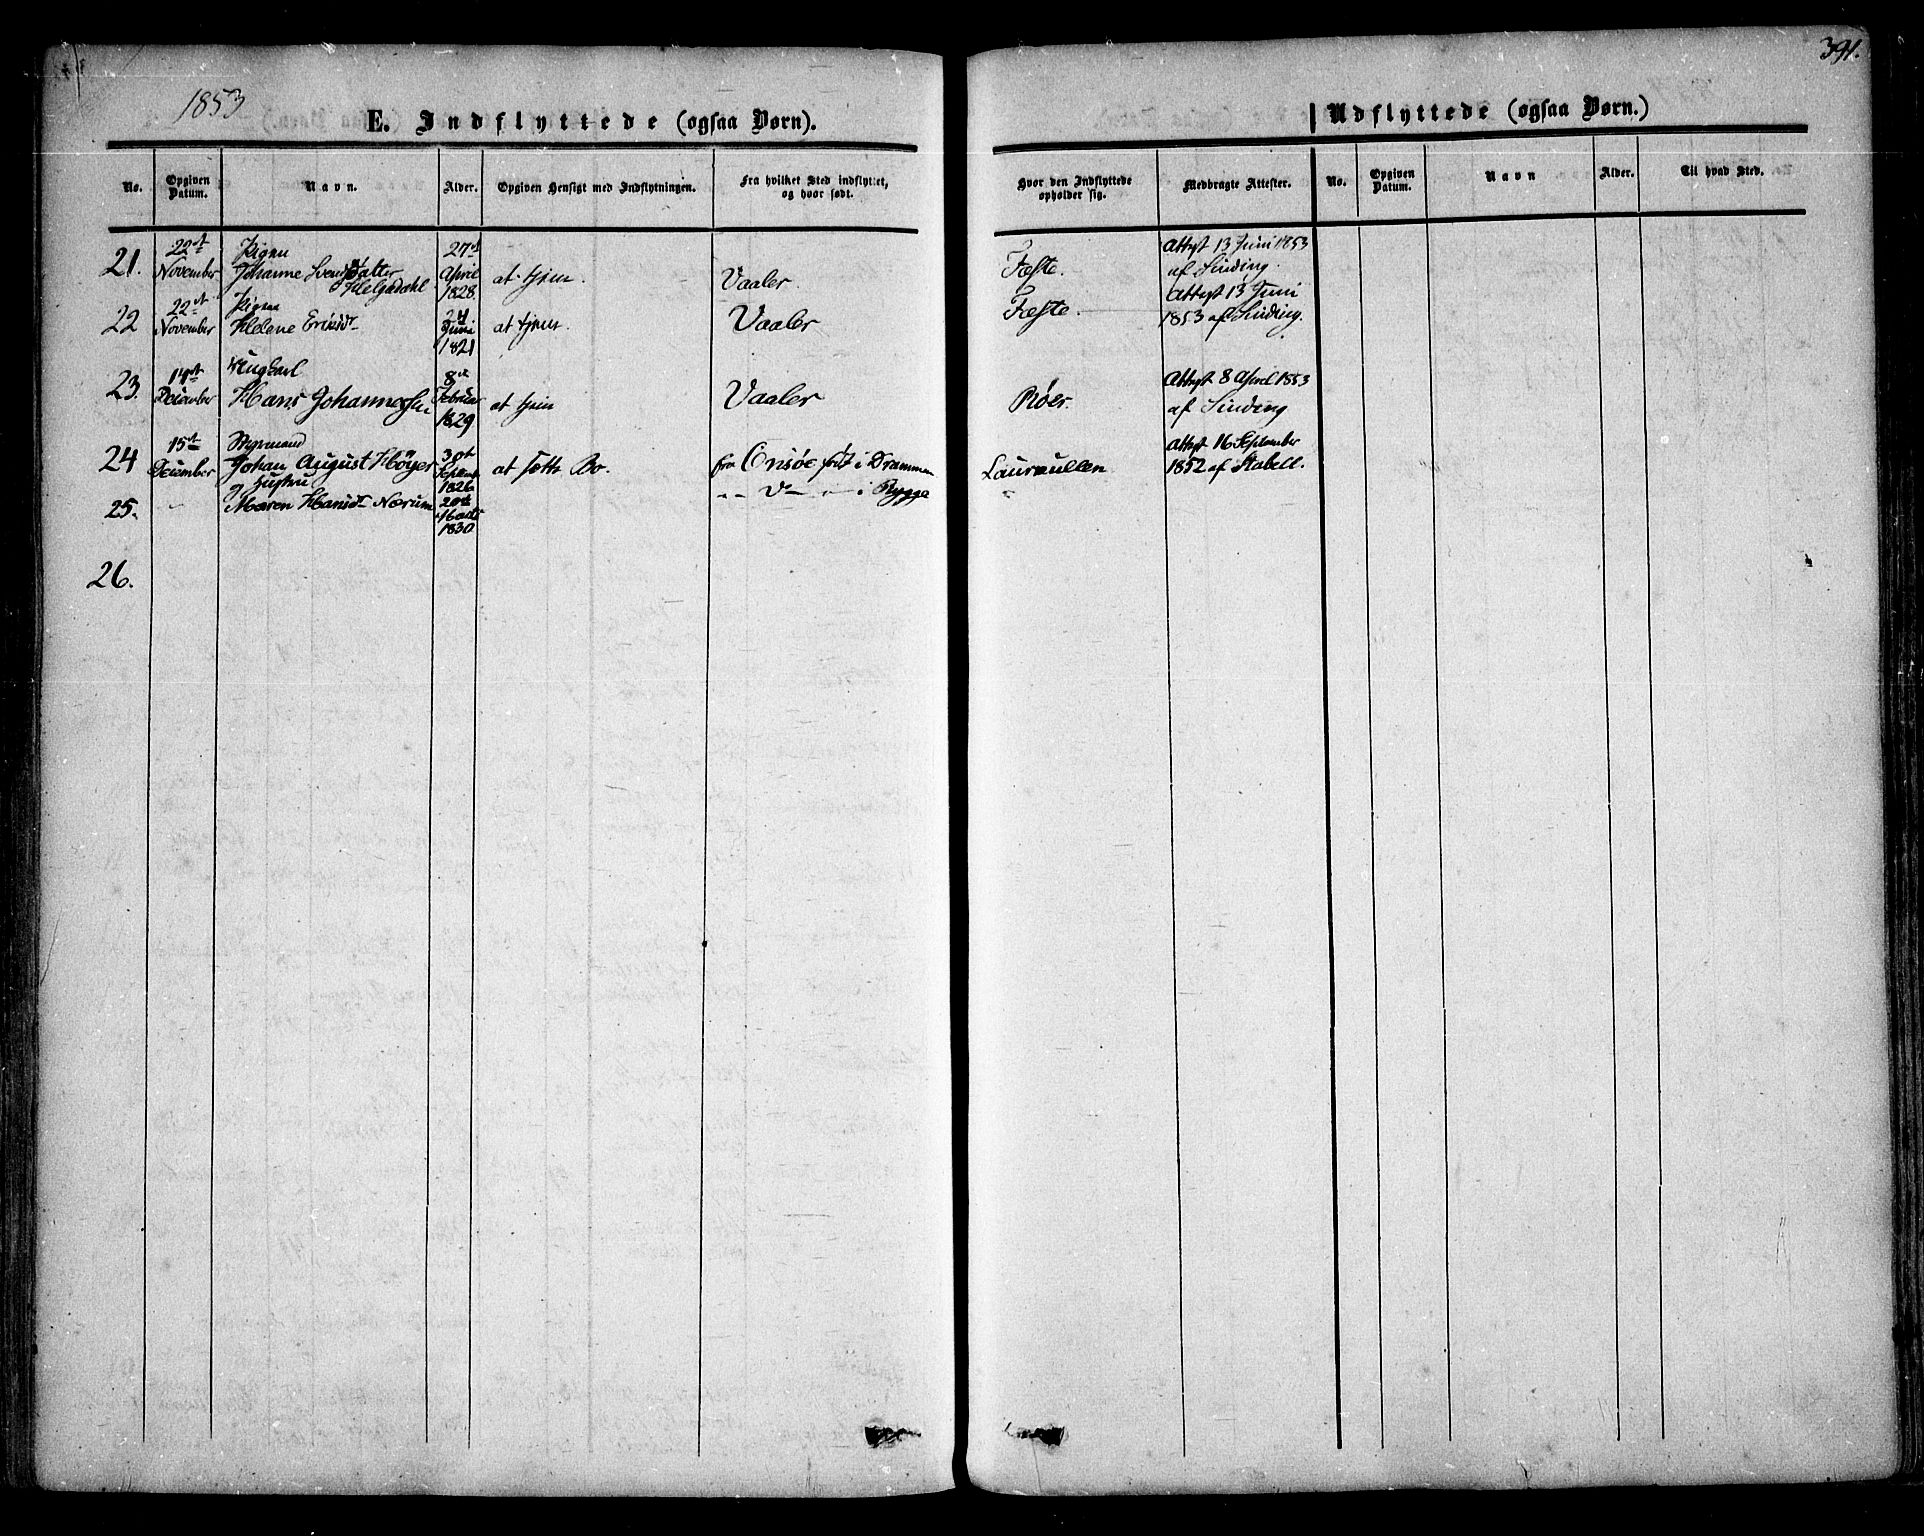 391.
1853
E. Indflyttede (ogsaa Børn).
Udflyttede (ogsaa Børn.)
No. Opgiven Datum. Navn. Alder. Opgiven Hensigt med Indflytningen. Fra hvilket Sted indflyttet, og hvor født. Hvor den Indflyttede opholder sig. Medbragte Attester. No. Opgiven Datum. Navn Alder. Til hvad Sted.
22de Pigen 27de Attest 13 Juni 1853
21. November Johanne Svendsdatter April at tjene. Vaaler. Feste. af Sinding.
Helgedahl 1828.
22de Pigen 24 Attest 13 Juni
22 November Helene Ericsdr Juni at tjene. Vaaler Feste. 1853 af Sinding.
1821
14de Ungkarl 8de Attest 8 April 1853
23. December Hans Johannesen Februar at tjene Vaaler Røer. af Sinding
1829
15de Styrmand 30t Attest 16 September
24 December Johan August Höyer Septemb at sætte Bo. fra Onsøe født i Drammen Laurkullen 1852 af Stabell.
og Hustru 1826
25. Maren Hansdr Nærum 20de i Rygge
1830
26.